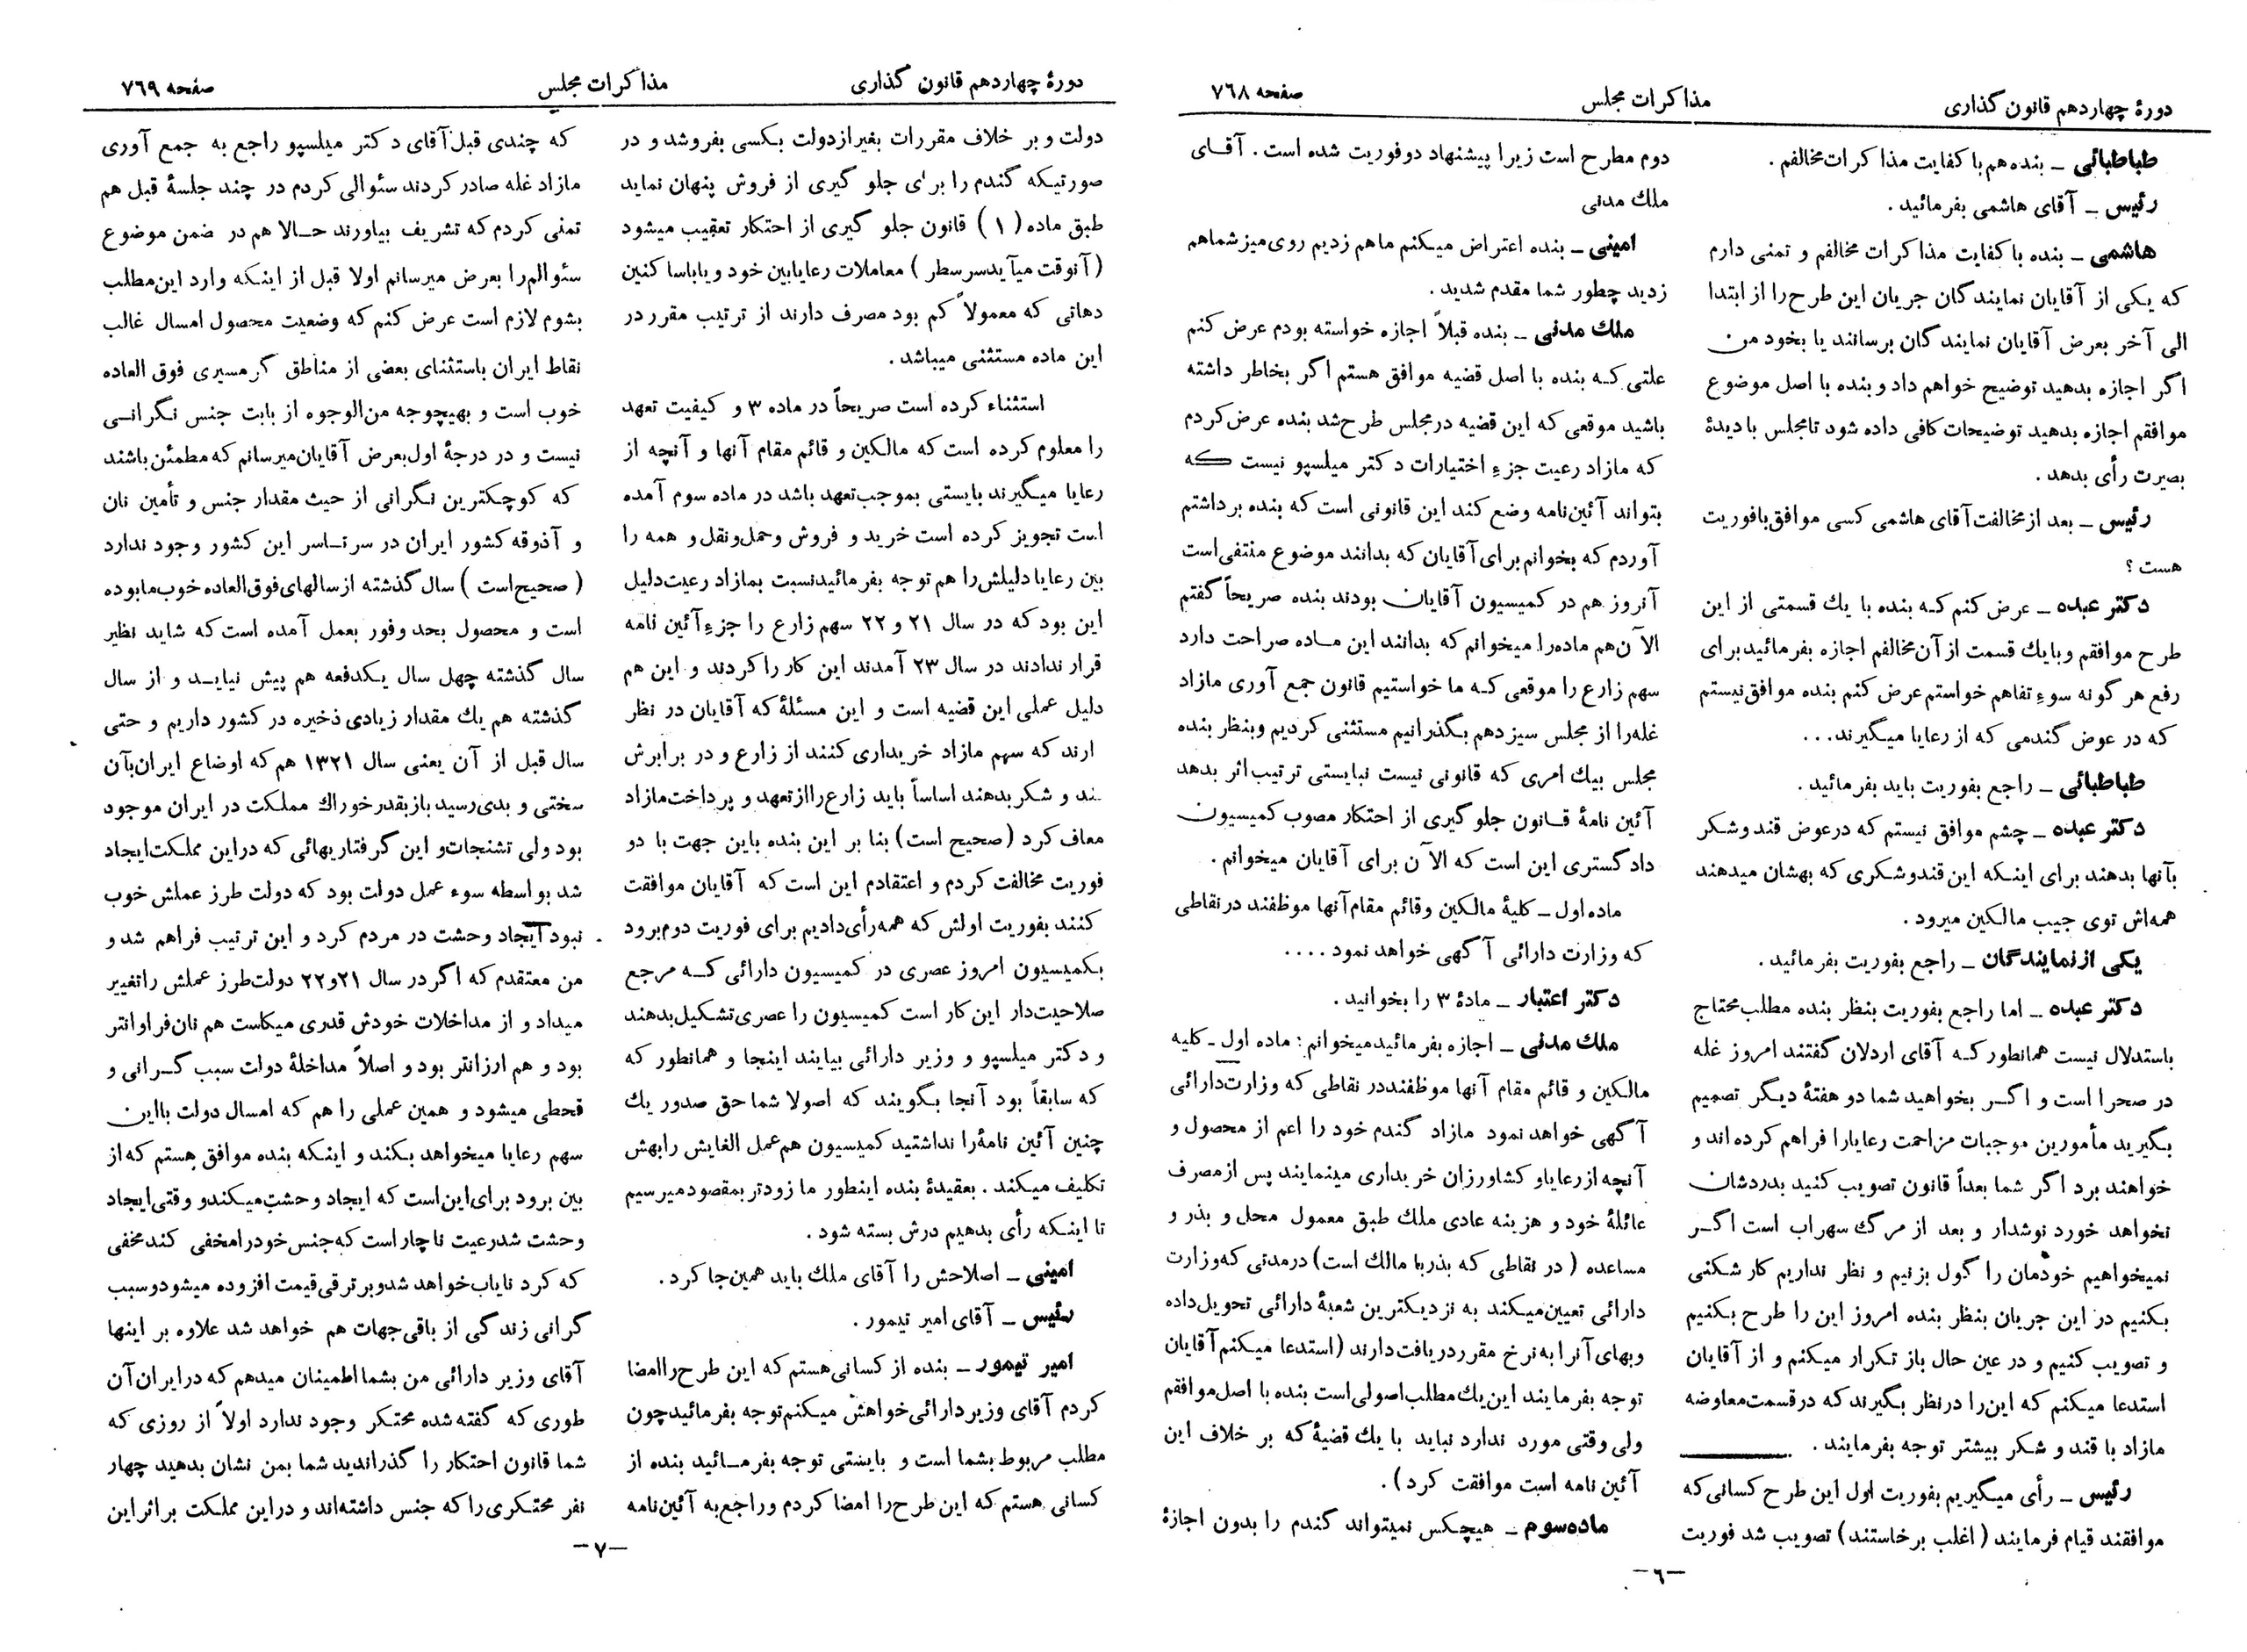 دورهٔ چهاردهم قانون گذاری
مذاکرات مجلس
صفحه ۷٦۸
طباطبائی ــ بنده هم با کفایت مذاکرات مخالفم .
رئیس ــ آقای هاشمی بفرمائید .
هاشمی ــ بنده با کفایت مذاکرات مخالفم و تمنی دارم
که یکی از آقایان نمایندگان جریان این طرح را از ابتدا
الی آخر بعرض آقایان نمایندگان برسانند یا بخود من
اگر اجازه بدهید توضیح خواهم داد و بنده با اصل موضوع
موافقم اجازه بدهید توضیحات کافی داده شود تا مجلس با دیدهٔ
بصیرت رأی بدهد .
رئیس ــ بعد از مخالفت آقای هاشمی کسی موافق با فوریت
هست ؟
دکتر عبده ــ عرض کنم که بنده با یك قسمتی از این
طرح موافقم و با یك قسمت از آن مخالفم اجازه بفرمائید برای
رفع هر گونه سوء تفاهم خواستم عرض کنم بنده موافق نیستم
که در عوض گندمی که از رعایا میگیرند...
طباطبائی ــ راجع بفوریت باید بفرمائید .
دکتر عبده ــ چشم موافق نیستم که در عوض قند و شکر
بآنها بدهند برای اینکه این قند و شکری که بهشان میدهند
همه‌اش توی جیب مالکین میرود .
یکی از نمایندگان ــ راجع بفوریت بفرمائید .
دکتر عبده ــ اما راجع بفوریت بنظر بنده مطلب محتاج
باستدلال نیست همانطور که آقای اردلان گفتند امروز غله
در صحرا است و اگر بخواهید شما دو هفتهٔ دیگر تصمیم
بگیرید مأمورین موجبات مزاحمت رعایا را فراهم کرده اند و
خواهند برد اگر شما بعداً قانون تصویب کنید بدردشان
نخواهد خورد نوشدار و بعد از مرگ سهراب است اگر
نمیخواهیم خودمان را گول بزنیم و نظر نداریم کار شکنی
بکنیم در این جریان بنظر بنده امروز این را طرح بکنیم
و تصویب کنیم و در عین حال باز تکرار میکنم و از آقایان
استدعا میکنم که این را در نظر بگیرند که در قسمت معاوضه
مازاد با قند و شکر بیشتر توجه بفرمایند .
رئیس ــ رأی میگیریم بفوریت اول این طرح کسانی که
موافقند قیام فرمایند ( اغلب برخاستند ) تصویب شد فوریت
دوم مطرح است زیرا پیشنهاد دو فوریت شده است . آقای
ملك مدنی
امینی ــ بنده اعتراض میکنم ما هم زدیم روی میز شما هم
زدید چطور شما مقدم شدید .
ملك مدنی ــ بنده قبلاً اجازه خواسته بودم عرض کنم
علتی که بنده با اصل قضیه موافق هستم اگر بخاطر داشته
باشید موقعی که این قضیه در مجلس طرح شد بنده عرض کردم
که مازاد رعیت جزء اختیارات دکتر میلسپو نیست که
بتواند آئین‌نامه وضع کند این قانونی است که بنده برداشتم
آوردم که بخوانم برای آقایان که بدانند موضوع منتفی است
آنروز هم در کمیسیون آقایان بودند بنده صریحاً گفتم
الآن هم ماده را میخوانم که بدانند این ماده صراحت دارد
سهم زارع را موقعی که ما خواستیم قانون جمع آوری مازاد
غله را از مجلس سیزدهم بگذرانیم مستثنی کردیم و بنظر بنده
مجلس بیك امری که قانونی نیست نبایستی ترتیب اثر بدهد
آئین نامهٔ قانون جلو گیری از احتکار مصوب کمیسیون
دادگستری این است که الآن برای آقایان میخوانم .
ماده اول ــ کلیهٔ مالکین و قائم مقام آنها موظفند در نقاطی
که وزارت دارائی آگهی خواهد نمود ....
دکتر اعتبار ــ مادهٔ ۳ را بخوانید .
ملك مدنی ــ اجازه بفرمائید میخوانم : ماده اول ــ کلیه
مالکین و قائم مقام آنها موظفند در نقاطی که وزارت دارائی
آگهی خواهد نمود مازاد گندم خود را اعم از محصول و
آنچه از رعایا و کشاورزان خریداری مینمایند پس از مصرف
عائلهٔ خود و هزینه عادی ملك طبق معمول محل و بذر و
مساعده ( در نقاطی که بذر با مالك است ) در مدتی که وزارت
دارائی تعیین میکند به نزدیکترین شعبهٔ دارائی تحویل داده
و بهای آنرا به نرخ مقرر دریافت دارند (استدعا میکنم آقایان
توجه بفرمایند این یك مطلب اصولی است بنده با اصل موافقم
ولی وقتی مورد ندارد نباید با یك قضیهٔ که بر خلاف این
آئین نامه است موافقت کرد ) .
ماده سوم ــ هیچکس نمیتواند گندم را بدون اجازهٔ
ــ٦ــ
دورهٔ چهاردهم قانون گذاری
مذاکرات مجلس
صفحه ۷٦۹
دولت و بر خلاف مقررات بغیر از دولت بکسی بفروشد و در
صورتیکه گندم را برای جلو گیری از فروش پنهان نماید
طبق ماده ( ۱ ) قانون جلو گیری از احتکار تعقیب میشود
( آنوقت میآید سر سطر ) معاملات رعایا بین خود و یا با ساکنین
دهاتی که معمولاً کم بود مصرف دارند از ترتیب مقرر در
این ماده مستثنی میباشد .
استثناء کرده است صریحاً در ماده ۳ و کیفیت تعهد
را معلوم کرده است که مالکین و قائم مقام آنها و آنچه از
رعایا میگیرند بایستی بموجب تعهد باشد در ماده سوم آمده
است تجویز کرده است خرید و فروش و حمل و نقل و همه را
بین رعایا دلیلش را هم توجه بفرمائید نسبت بمازاد رعیت دلیل
این بود که در سال ۲۱ و ۲۲ سهم زارع را جزء آئین نامه
قرار ندادند در سال ۲۳ آمدند این کار را کردند و این هم
دلیل عملی این قضیه است و این مسئلهٔ که آقایان در نظر
ارند که سهم مازاد خریداری کنند از زارع و در برابرش
ند و شکر بدهند اساساً باید زارع را از تعهد و پرداخت مازاد
معاف کرد (صحیح است) بنا بر این بنده باین جهت با دو
فوریت مخالفت کردم و اعتقادم این است که آقایان موافقت
کنند بفوریت اولش که همه رأی دادیم برای فوریت دوم برود
بکمیسیون امروز عصری در کمیسیون دارائی که مرجع
صلاحیت‌دار این کار است کمیسیون را عصری تشکیل بدهند
و دکتر میلسپو و وزیر دارائی بیایند اینجا و همانطور که
که سابقاً بود آنجا بگویند که اصولا شما حق صدور یك
چنین آئین نامهٔ را نداشتید کمیسیون هم عمل الغایش را بهش
تکلیف میکند . بعقیدهٔ بنده اینطور ما زودتر بمقصود میرسیم
تا اینکه رأی بدهیم درش بسته شود .
امینی ــ اصلاحش را آقای ملك باید همین جا کرد .
رئیس ــ آقای امیر تیمور .
امیر تیمور ــ بنده از کسانی هستم که این طرح را امضا
کردم آقای وزیر دارائی خواهش میکنم توجه بفرمائید چون
مطلب مربوط بشما است و بایستی توجه بفرمائید بنده از
کسانی هستم که این طرح را امضا کردم و راجع به آئین‌نامه
که چندی قبل آقای دکتر میلسپو راجع به جمع آوری
مازاد غله صادر کردند سئوالی کردم در چند جلسهٔ قبل هم
تمنی کردم که تشریف بیاورند حالا هم در ضمن موضوع
سئوالم را بعرض میرسانم اولا قبل از اینکه وارد این مطلب
بشوم لازم است عرض کنم که وضعیت محصول امسال غالب
نقاط ایران باستثنای بعضی از مناطق گرمسیری فوق العاده
خوب است و بهیچوجه من‌الوجوه از بابت جنس نگرانی
نیست و در درجهٔ اول بعرض آقایان میرسانم که مطمئن باشند
که کوچکترین نگرانی از حیث مقدار جنس و تأمین نان
و آذوقه کشور ایران در سرتاسر این کشور وجود ندارد
( صحیح است ) سال گذشته از سالهای فوق العاده خوب ما بوده
است و محصول بحد وفور بعمل آمده است که شاید نظیر
سال گذشته چهل سال یکدفعه هم پیش نیاید و از سال
گذشته هم یك مقدار زیادی ذخیره در کشور داریم و حتی
سال قبل از آن یعنی سال ۱۳۲۱ هم که اوضاع ایران بآن
سختی و بدی رسید باز بقدر خوراك مملکت در ایران موجود
بود ولی تشنجات و این گرفتاریهائی که در این مملکت ایجاد
شد بواسطه سوء عمل دولت بود که دولت طرز عملش خوب
نبود ایجاد وحشت در مردم کرد و این ترتیب فراهم شد و
من معتقدم که اگر در سال ۲۱ و ۲۲ دولت طرز عملش را تغییر
میداد و از مداخلات خودش قدری میکاست هم نان فراوانتر
بود و هم ارزانتر بود و اصلاً مداخلهٔ دولت سبب گرانی و
قحطی میشود و همین عملی را هم که امسال دولت با این
سهم رعایا میخواهد بکند و اینکه بنده موافق هستم که از
بین برود برای این است که ایجاد وحشت میکند و وقتی ایجاد
وحشت شد رعیت ناچار است که جنس خود را مخفی کند مخفی
که کرد نایاب خواهد شد و بر ترقی قیمت افزوده میشود و سبب
گرانی زندگی از باقی جهات هم خواهد شد علاوه بر اینها
آقای وزیر دارائی من بشما اطمینان میدهم که در ایران آن
طوری که گفته شده محتکر وجود ندارد اولاً از روزی که
شما قانون احتکار را گذراندید شما بمن نشان بدهید چهار
نفر محتکری را که جنس داشته‌اند و در این مملکت بر اثر این
ــ۷ــ